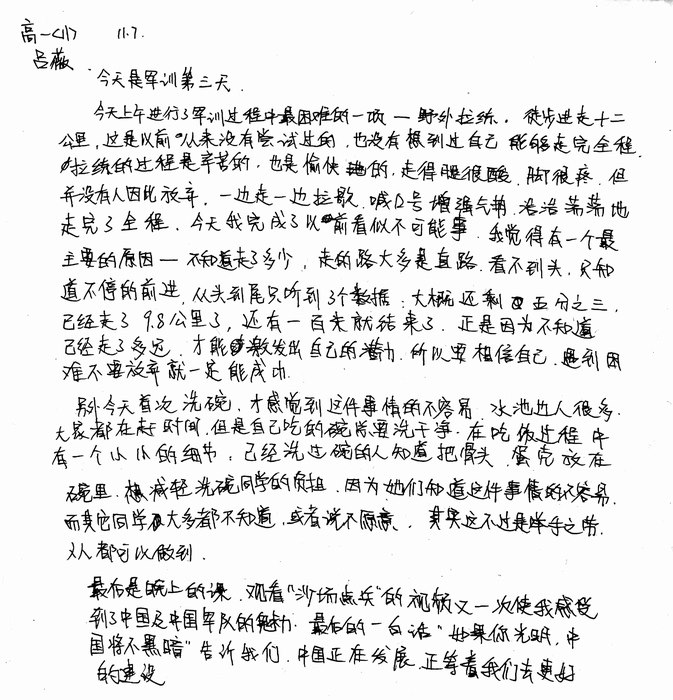 高一<11> 11.7.
吕薇
今天是军训第三天.
今天上午进行了军训过程中最困难的一项—野外拉练，徒步进走十二
公里，这是以前从来没有尝试过的，也没有想到过自己能够走完全程.
拉练的过程是辛苦的，也是愉快地的，走得腿很酸，脚很疼，但
并没有人因此放弃，一边走一边拉歌，喊口号增强气势，浩浩荡荡地
走完了全程，今天我完成了以前看似不可能事，我觉得有一个最
主要的原因—不知道走了多少，走的路大多是直路，看不到头，只知
道不停的前进，从头到尾只听到3个数据：大概还剩五分之三，
已经走了9.8公里了，还有一百米就结束了，正是因为不知道
已经走了多远，才能够激发出自己的潜力，所以要相信自己，遇到困
难不要放弃就一定能成功.
另外今天首次洗碗，才感觉到这件事情的不容易，水池边人很多，
大家都在赶时间，但是自己吃的碗总要洗干净，在吃饭过程中
有一个小小的细节，已经洗过碗的人知道把骨头、蛋壳放在
碗里，想减轻洗碗同学的负担，因为她们知道这件事情的不容易，
而其它同学大多都不知道，或者说不愿意，其实这不过是举手之劳，
人人都可以做到.
最后是晚上的课，观看“沙场点兵”的视频又一次使我感受
到了中国及中国军队的魅力，最后的一句话“如果你光明，中
国将不黑暗”告诉我们，中国正在发展，正等着我们去更好
的建设